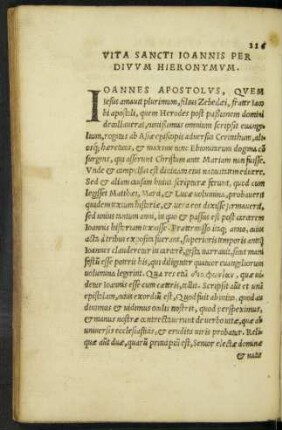 226
VITA SANCTI IOANNIS PER
DIVVM HIERONYMVM.
IOANNES APOSTOLVS, QVEM
Iesus amauit plurimum, filius Zebedæi, frater Iaco
bi apostoli, quem Herodes post passionem domini
decollauerat, nouissimus omnium scripsit euange
lium, rogatus ab Asiæ episcopis aduersus Cerinthum, ali
osq; hæreticos, & maxime tunc Ebionitarum dogma cō
surgens, qui asserunt Christum ante Mariam non fuisse.
Vnde & compulsus est diuinam eius natiuitatem edicere.
Sed & aliam causam huius scripturæ ferunt, quod cum
legisset Matthæi, Marci, & Lucæ uolumina, probauerit
quidem textum historiæ, & uera eos dixisse firmauerit,
sed unius tantum anni, in quo & passus est post carcerem
Ioannis historiam texuisse. Prætermisso itaq; anno, cuius
acta à tribus exposita fuerant, superioris temporis antequā
Ioannes clauderetur in carcerē, gesta narrauit, sicut mani
festū esse poterit his, qui diligenter quatuor euangeliorum
uolumina legerint. Quæ res etiā διαφωνίαν, quæ ui
detur Ioannis esse cum cæteris, tollit. Scripsit aūt et unā
epistolam, cuius exordiū est, Quod fuit ab initio, quod au
diuimus & uidimus oculis nostris, quod perspeximus,
& manus nostræ cōtrectauerunt de uerbo uitæ, quæ ab
uniuersis ecclesiasticis, & eruditis uiris probatur. Reli
quæ aūt duæ, quarū principiū est, Senior electæ dominæ